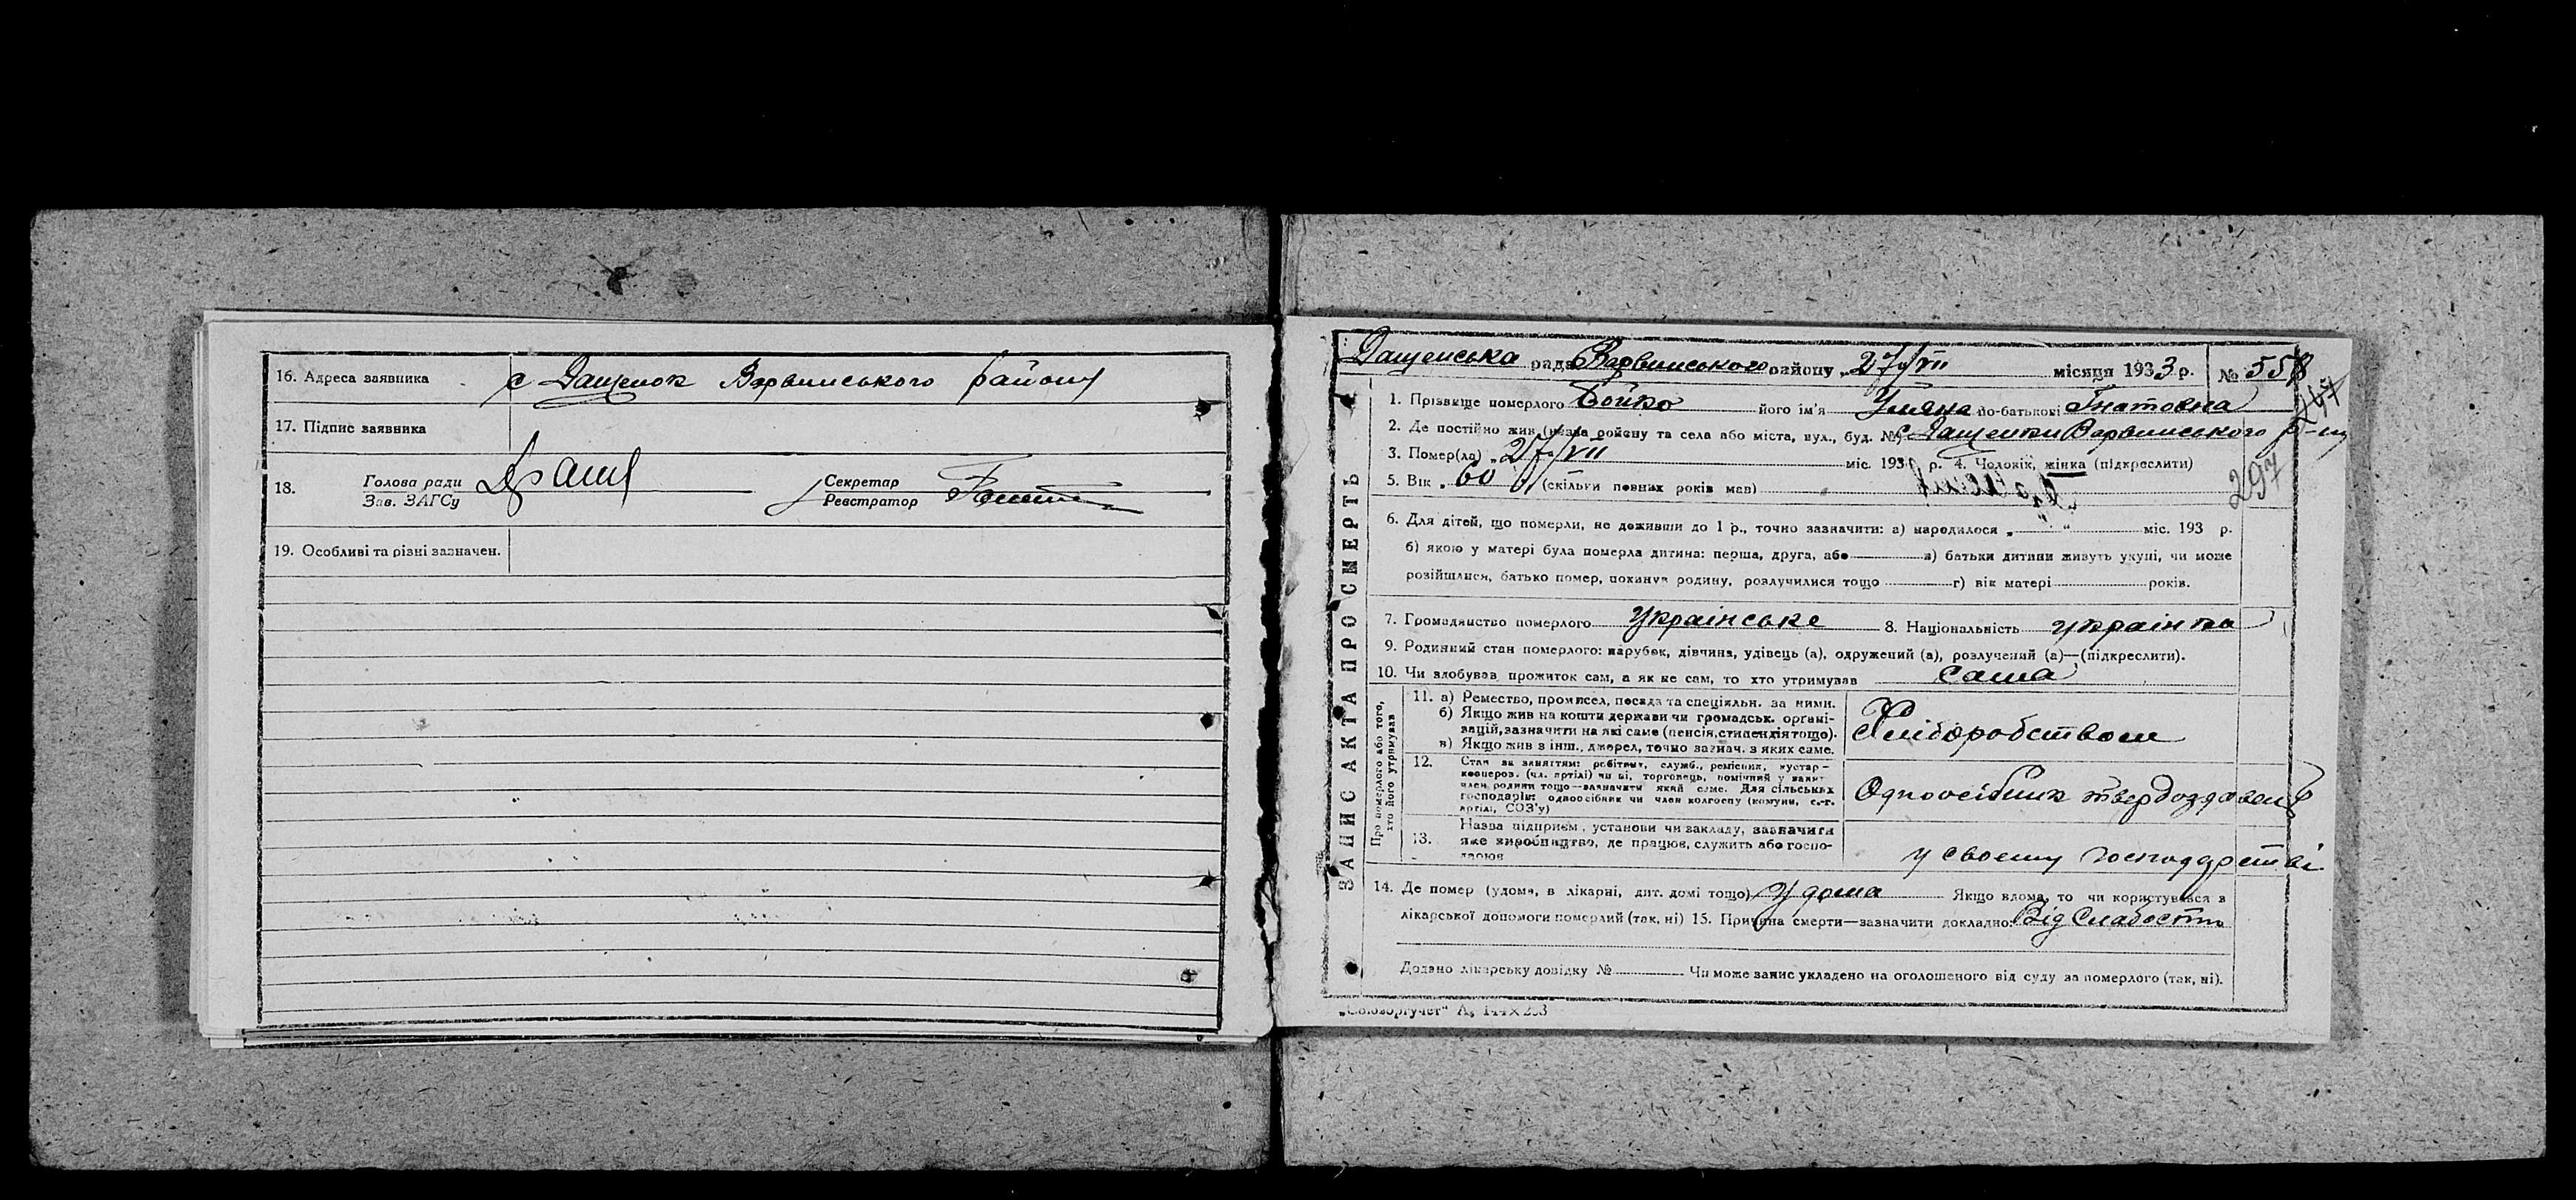 16. Адреса заявника с Дащенок Варвинського району
17. Підпис заявника
18. Голова ради Секретар
Зав. ЗАГСу Реєстратор
19. Особливі та різні зазначен.
Дащенська рада Варвинського району „ 27/VII місяця 1933 р. № 558
247
1. Прізвище померлого Бойко його ім'я Уляна по-батькові Гнатовна
2. Де постійно жив (назва району та села або міста, вул., буд. № с Дащенки Варвинського р-ну
3. Помер(ла) „ 27/VII міс. 193 р. 4. Чоловік, жінка (підкреслити)
5. Вік „ 60 (скільки повних років мав)
297
6. Для дітей, що померли, не доживши до 1 р., точно зазначити: а) народилося „ “ міс. 193 р.
б) якою у матері була померла дитина: перша, друга, або в) батьки дитини живуть укупі, чи може
розійшлися, батько помер, покинув родину, розлучилися тощо г) вік матері років.
7. Громадянство померлого українське 8. Національність українка
9. Родинний стан померлого: парубок, дівчина, удівець (а), одружений (а), розлучений (а)—(підкреслити).
10. Чи здобував прожиток сам, а як не сам, то хто утримував сама
ЗАПИС АКТА ПРО СМЕРТЬ
Про померлого або того,
хто його утримував
11. а) Ремество, промисел, посада та спеціяльн. за ними.
б) Якщо жив на кошти держави чи громадськ. органі-
зацій, зазначити на які саме (пенсія, стипендія тощо).
в) Якщо жив з інш. джерел, точно зазнач. з яких саме.
Хліборобством
12. Стан за заняттям: робітник, служб., ремісник, кустар-
кооперов. (чл. артілі) чи ні, торговець, помічний у занят
член родини тощо—зазначити який саме. Для сільських
господарів: одноосібник чи член колгоспу (комуни, с.-г.
артілі, СОЗ'у)
Одноосібник твердоздавец
13. Назва підприєм., установи чи закладу, зазначити
яке виробництво, де працює, служить або госпо-
дарює
у своєму господарстві
14. Де помер (удома, в лікарні, дит. домі тощо) У дома Якщо вдома, то чи користувався з
лікарської допомоги померлий (так, ні) 15. Причина смерти—зазначити докладно: Від Слабости
Додано лікарську довідку № Чи може запис укладено на оголошеного від суду за померлого (так, ні).
„Союзоргучет“